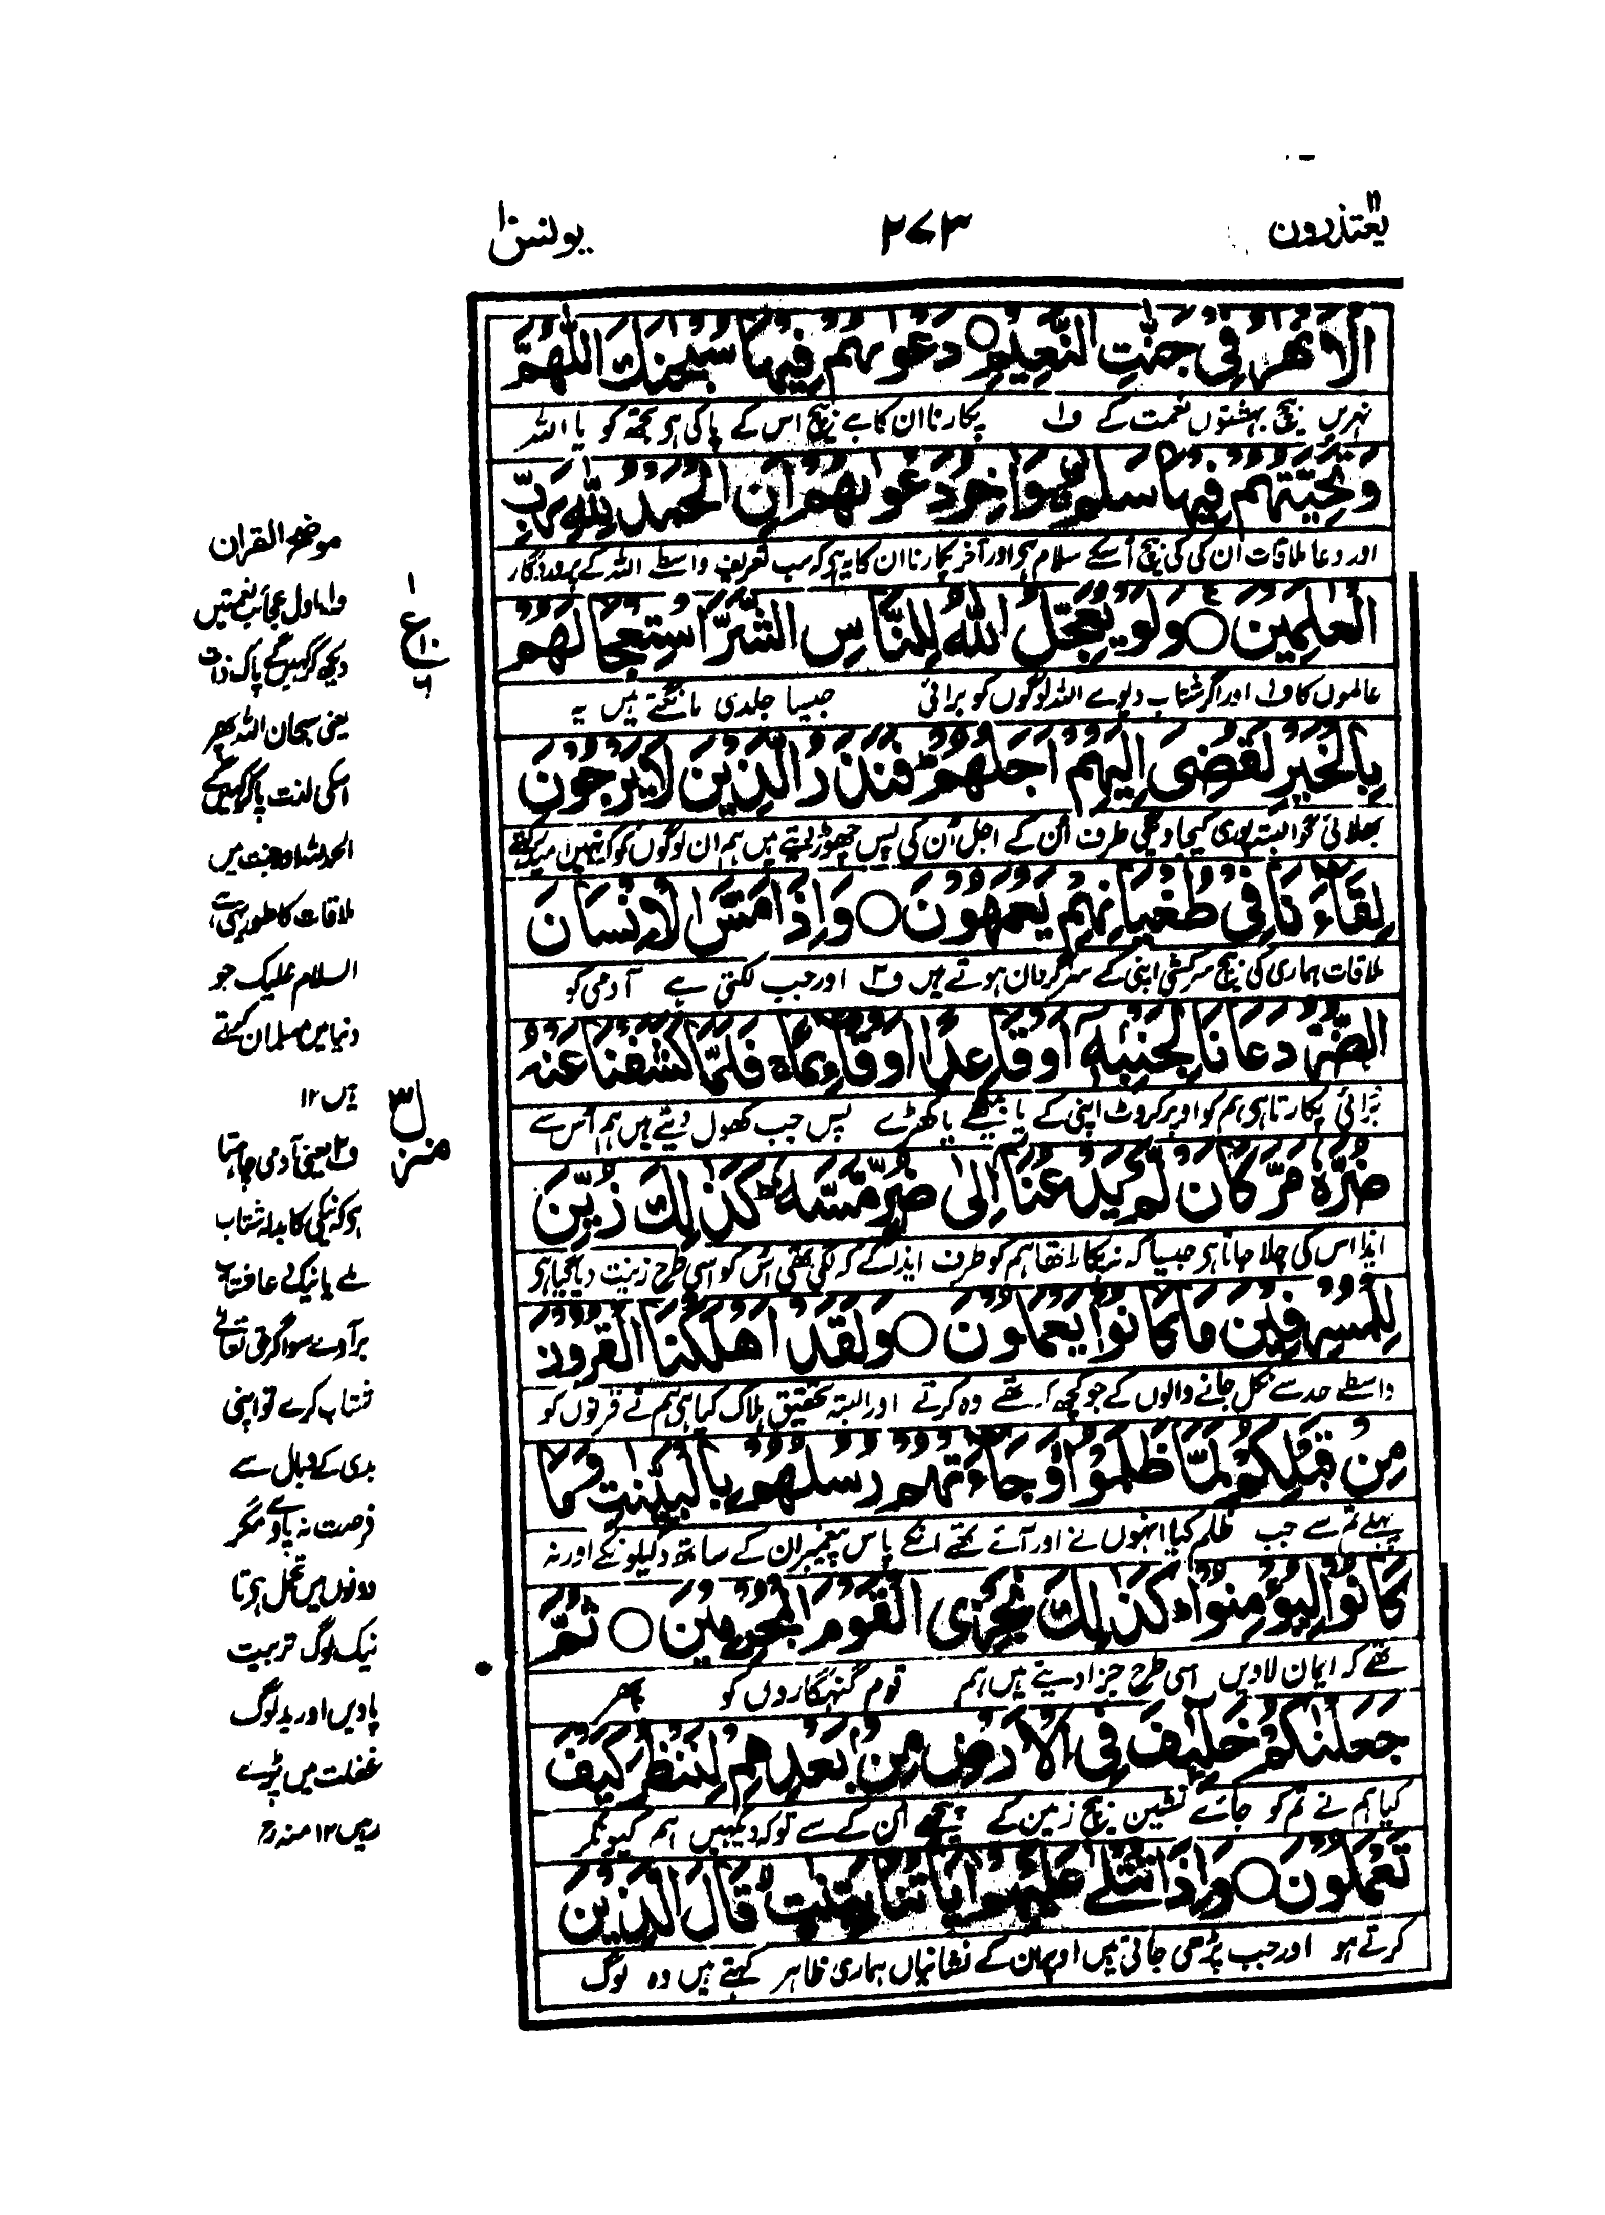 یعتذرون ۱۱
۲۷۳
یونس ۱۰
الْاَنْهٰرُ فِیْ جَنّٰتِ النَّعِیْمِ ○ دَعْوٰىهُمْ فِیْهَا سُبْحٰنَكَ اللّٰهُمَّ
نہریں بیچ بہشتوں نعمت کے ف۱ پکارنا ان کا ہے بیچ اس کے پاکی ہی تجھ کو یا اللہ
وَتَحِیَّتُهُمْ فِیْهَا سَلٰمٌ وَاٰخِرُ دَعْوٰىهُمْ اَنِ الْحَمْدُ لِلّٰهِ رَبِّ
اور دعا ملاقات ان کی کی بیچ اسکے سلام ہی اور آخر پکارنا ان کا یہ ہی کہ سب تعریف واسطے اللہ کے پروردگار
الْعٰلَمِیْنَ ○ وَلَوْ یُعَجِّلُ اللّٰهُ لِلنَّاسِ الشَّرَّ اسْتِعْجَالَهُمْ
عالموں کا ف۱ اور اگر شتاب دیوے اللہ لوگوں کو برائی جیسا جلدی مانگتے ہیں یہ
بِالْخَیْرِ لَقُضِیَ اِلَیْهِمْ اَجَلُهُمْ ؕ فَنَذَرُ الَّذِیْنَ لَا یَرْجُوْنَ
بھلائی کو البتہ پوری کیجاوے گی طرف ان کے اجل ان کی پس چھوڑ دیتے ہیں ہم ان لوگوں کو کہ نہیں امید رکھتے
لِقَآءَنَا فِیْ طُغْیَانِهِمْ یَعْمَهُوْنَ ○ وَاِذَا مَسَّ الْاِنْسَانَ
ملاقات ہماری کی بیچ سرکشی اپنی کے سرگردان ہوتے ہیں ف۲ اور جب لگتی ہے آدمی کو
الضُّرُّ دَعَانَا لِجَنْۢبِهٖ اَوْ قَاعِدًا اَوْ قَآئِمًا ۚ فَلَمَّا كَشَفْنَا عَنْهُ
برائی پکارتا ہی ہم کو اوپر کروٹ اپنی کے یا بیٹھے یا کھڑے پس جب کھول دیتے ہیں ہم اس سے
ضُرَّهٗ مَرَّ كَاَنْ لَّمْ یَدْعُنَا اِلٰى ضُرٍّ مَّسَّهٗ ؕ كَذٰلِكَ زُیِّنَ
ایذا اس کی چلا جاتا ہی جیسا کہ نہ پکارا تھا ہم کو طرف ایذا کے کہ لگی تھی اس کو اسی طرح زینت دیا گیا ہی
لِلْمُسْرِفِیْنَ مَا كَانُوْا یَعْمَلُوْنَ ○ وَلَقَدْ اَهْلَكْنَا الْقُرُوْنَ
واسطے حد سے نکل جانے والوں کے جو کچھ کہ تھے وہ کرتے اور البتہ تحقیق ہلاک کیا ہی ہم نے قرنوں کو
مِنْ قَبْلِكُمْ لَمَّا ظَلَمُوْا وَجَآءَتْهُمْ رُسُلُهُمْ بِالْبَیِّنٰتِ وَمَا
پہلے تم سے جب ظلم کیا انہوں نے اور آئے تھے انکے پاس پیغمبر ان کے ساتھ دلیلونکے اور نہ
كَانُوْا لِیُؤْمِنُوْا ؕ كَذٰلِكَ نَجْزِی الْقَوْمَ الْمُجْرِمِیْنَ ○ ثُمَّ
تھے کہ ایمان لاویں اسی طرح جزا دیتے ہیں ہم قوم گنہگاروں کو پھر
جَعَلْنٰكُمْ خَلٰٓئِفَ فِی الْاَرْضِ مِنْۢ بَعْدِهِمْ لِنَنْظُرَ كَیْفَ
کیا ہم نے تم کو جائے نشین بیچ زمین کے پیچھے ان کے سے تو کہ دیکھیں ہم کیونکر
تَعْمَلُوْنَ ○ وَاِذَا تُتْلٰى عَلَیْهِمْ اٰیَاتُنَا بَیِّنٰتٍ ۙ قَالَ الَّذِیْنَ
کرتے ہو اور جب پڑھی جاتی ہیں اوپر ان کے نشانیاں ہماری ظاہر کہتے ہیں وہ لوگ
۱
ع
۱۰
۶
منزل ۳
موضح القران
ف۱ اول عجائب نعمتیں
دیکھ کر کہیں گے پاک ذات
یعنی سبحان اللہ پھر
اسکی لذت پاکر کہیں گے
الحمد للہ اور جنت میں
ملاقات کا طور یہی ہے
السلام علیک جو
دنیا میں مسلمان کہتے
ہیں ۱۲
ف۲ یعنی آدمی چاہتا
ہی کہ نیکی کا بدلہ شتاب
ملے یا نیک عاقبت
بر آوے سو اگر حق تعالے
شتاب کرے تو اپنی
بدی کے وبال سے
فرصت نہ پاوے مگر
دونوں میں تحمل ہی تا
نیک لوگ تربیت
پاویں اور بد لوگ
غفلت میں پڑے
رہیں ۱۲ منہ رح